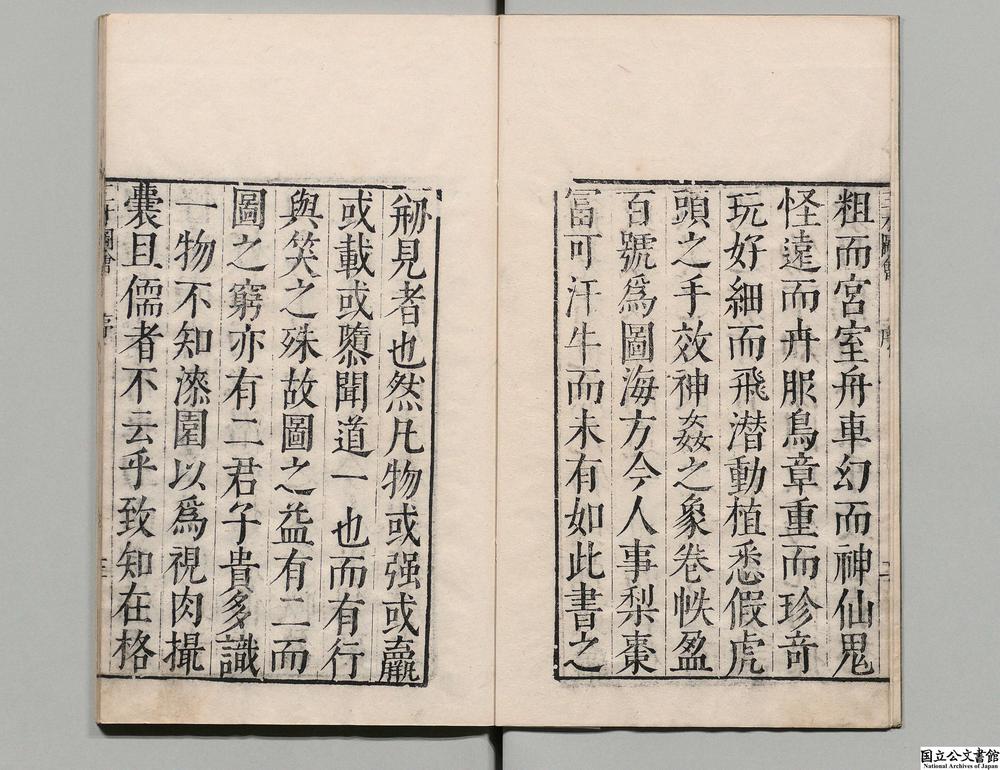 粗而宮室舟車幻而神仙鬼
怪遠而卉服鳥章重而珍竒
玩好細而飛潜動植悉假虎
頭之手效神姦之象卷帙盈
百號為圖海方今人事梨棗
富可汗牛而未有如此書之
三才圖會 序 二
刱見者也然凡物或强或羸
或載或隳聞道一也而有行
與笑之殊故圖之益有二而
圖之窮亦有二君子貴多識
一物不知漆園以為視肉撮
囊且儒者不云乎致知在格
三才圖會 序 三
国立公文書館
National Archives of Japan